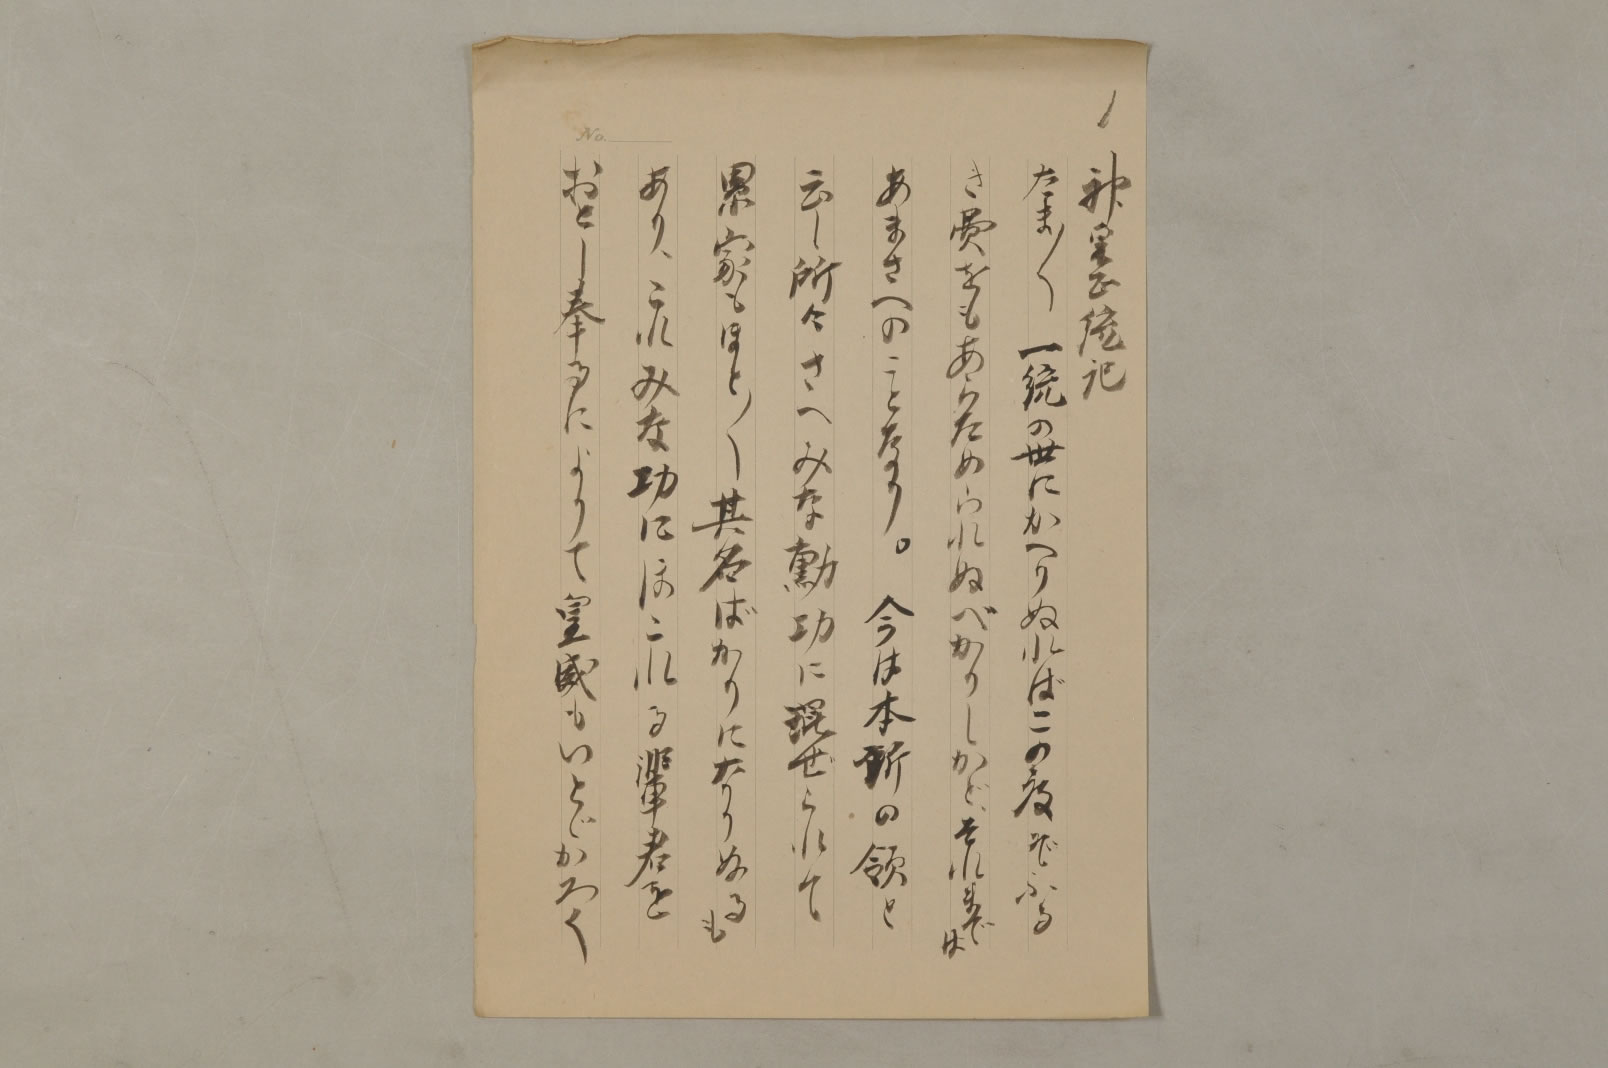 1
神皇正統記
たま〱一統の世にかへりぬればこの度ぞふる
き費をもあらためられぬべかりしかど、それまでは
あまさへのことなり。今は本所の領と
云し所々さへみな勲功に混ぜられて
累家もほと〱其名ばかりになりぬるも
あり、これみな功にほこれる輩君を
おとし奉るによりて皇威もいとゞかろく
No.